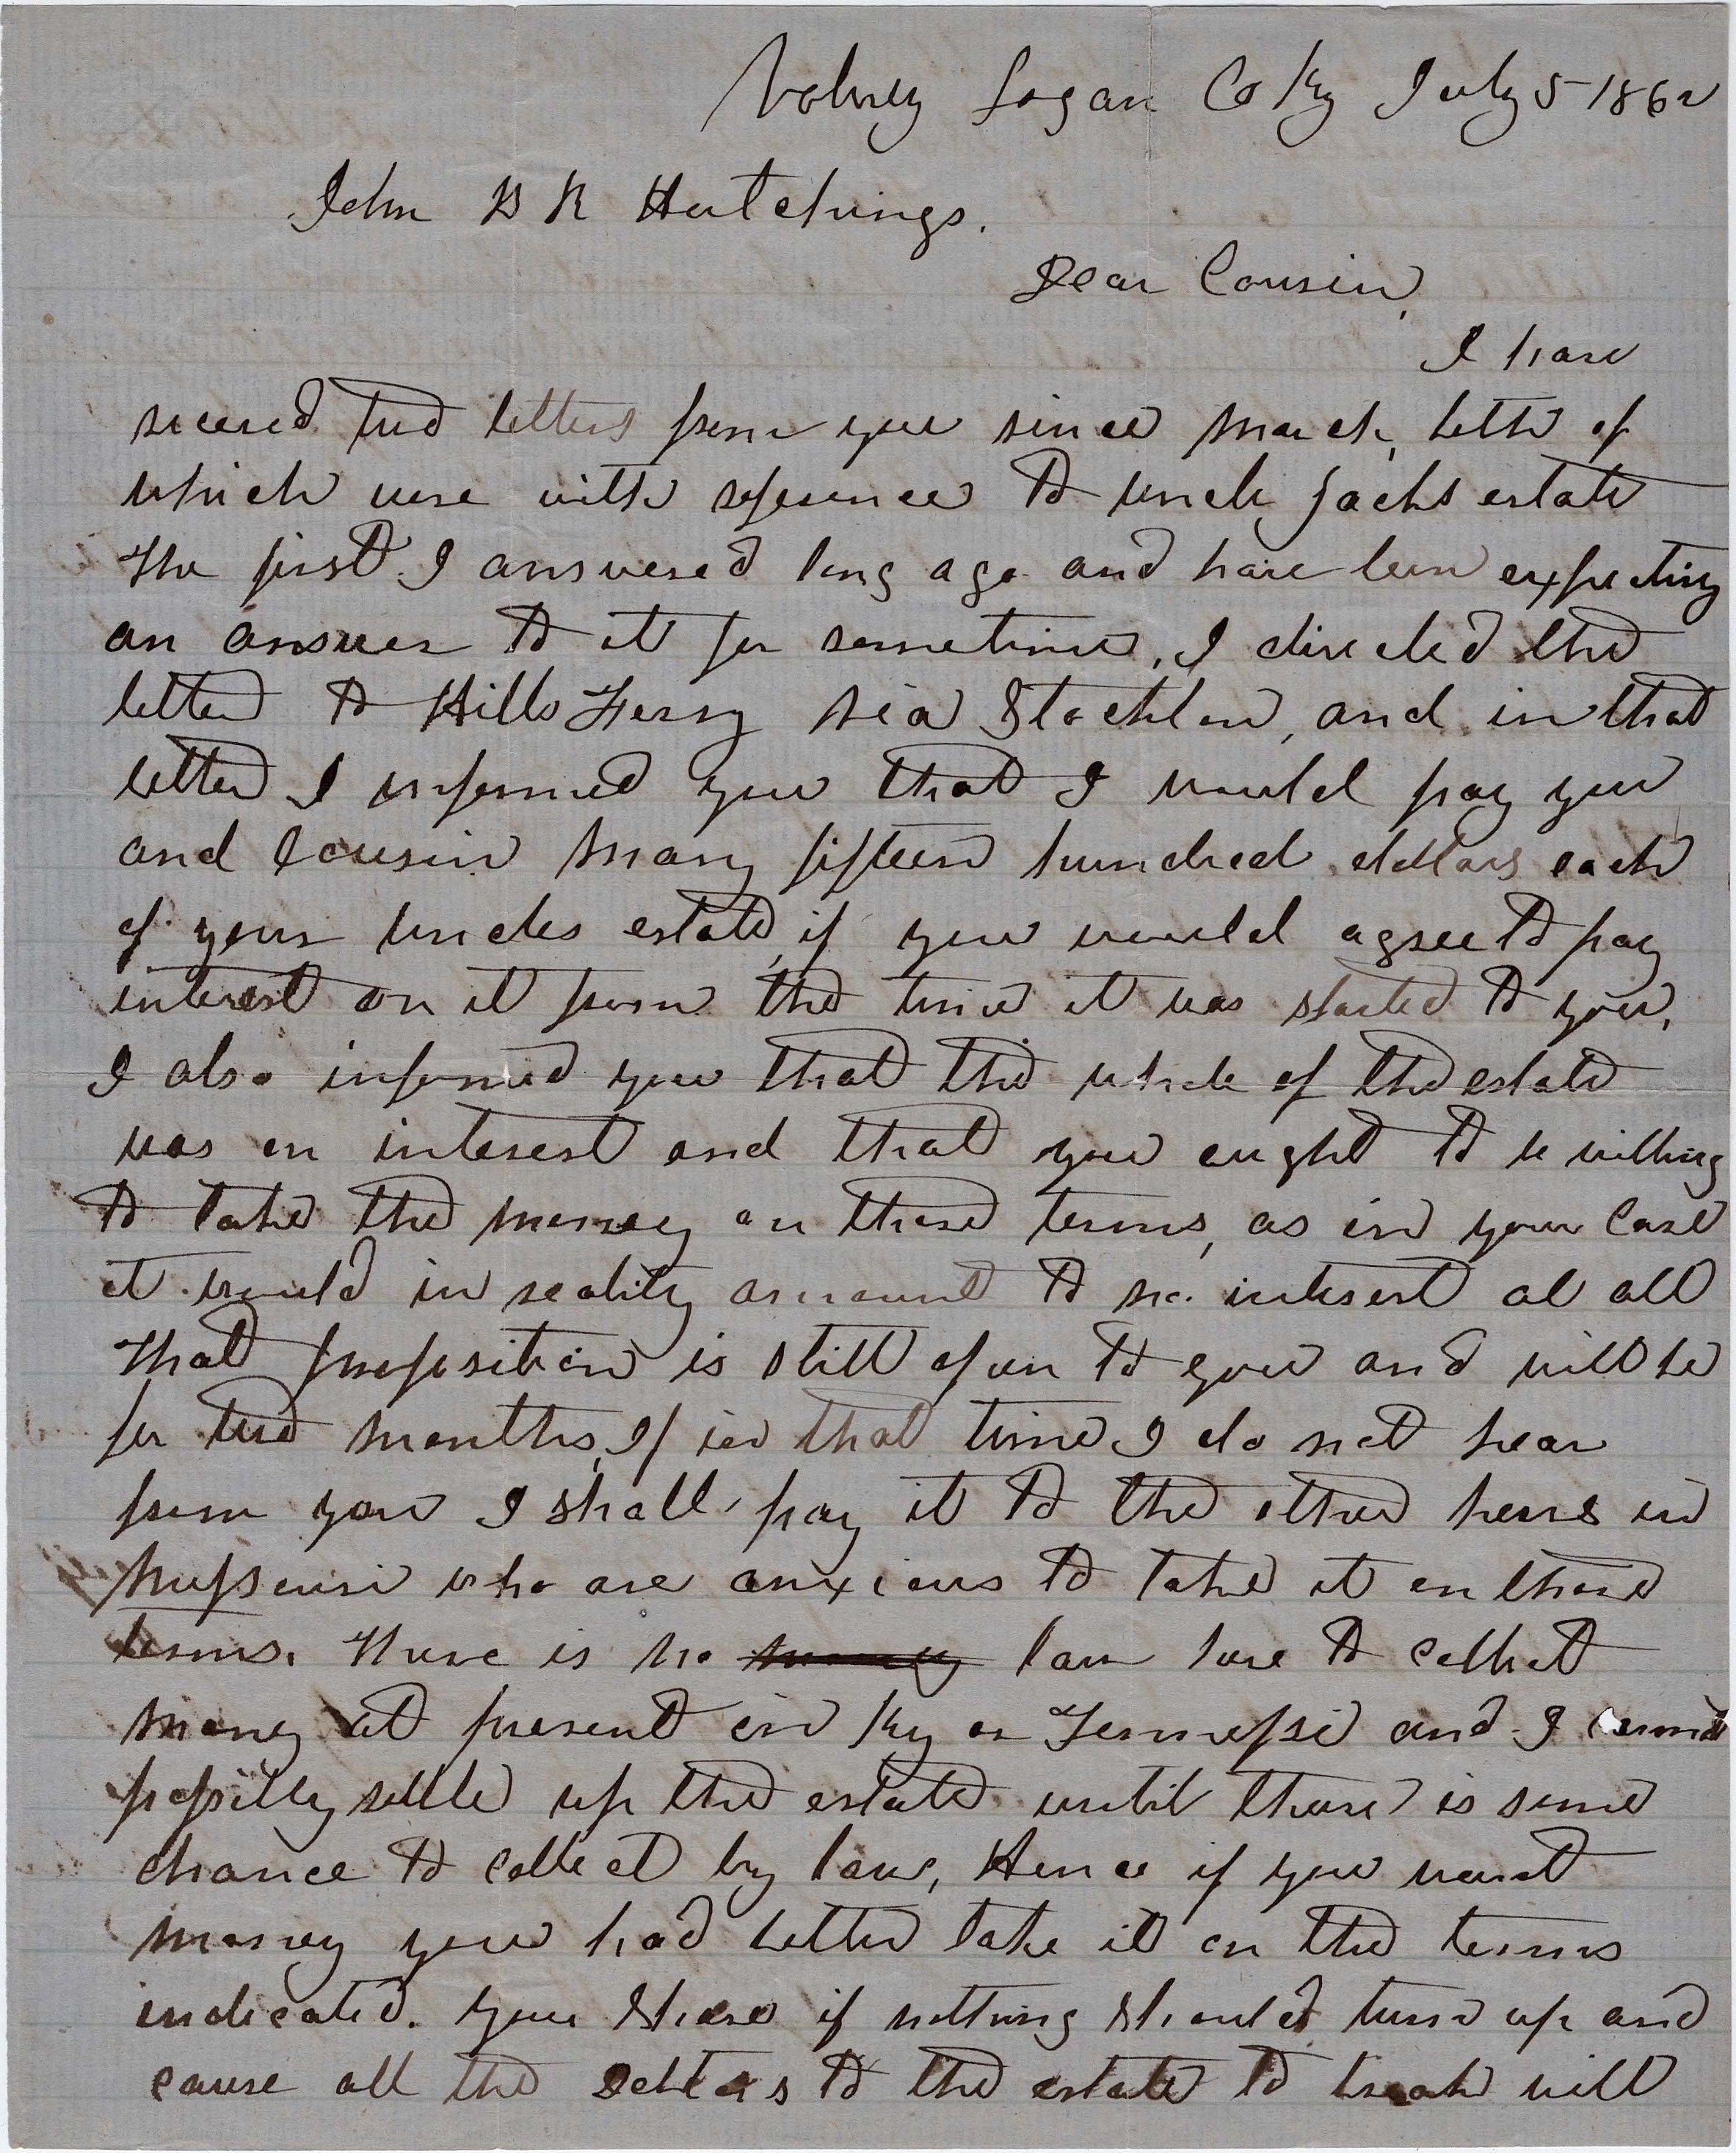 Volney Logan Co Ky July 5 1862
John B R Hutchings.
Dear Cousin,
I have
receved two letters from you since March, both of
which were with reference to uncle Jacks estate
The first I answered long ago and have been expecting
an answer to it for sometime, I directed the
letter to Hills Ferry via Stockton, and in that
letter I informed you that I would pay you
and Cousin Mary fifteen hundred dollars each
of your uncles estate, if you would agree to pay
interest on it from the time it was started to you,
I also informed you that the whole of the estate
was on interest and that you ought to be willing
to take the money on those terms, as in your case
it would in reality amount to no interest at all
That proposition is still open to you and will be
for two months, If in that time I do not hear
from you I shall pay it to the other heirs in
Missouri who are anxious to take it on those
terms. There is no money law here to collect
money at present in Ky or Tennessee and I cannot
possibly settle up the estate until there is some
chance to collect by law, Hence if you want
money you had better take it on the terms
indicated. Your share if nothing should turn up and
cause all the debtors to the estate to break will